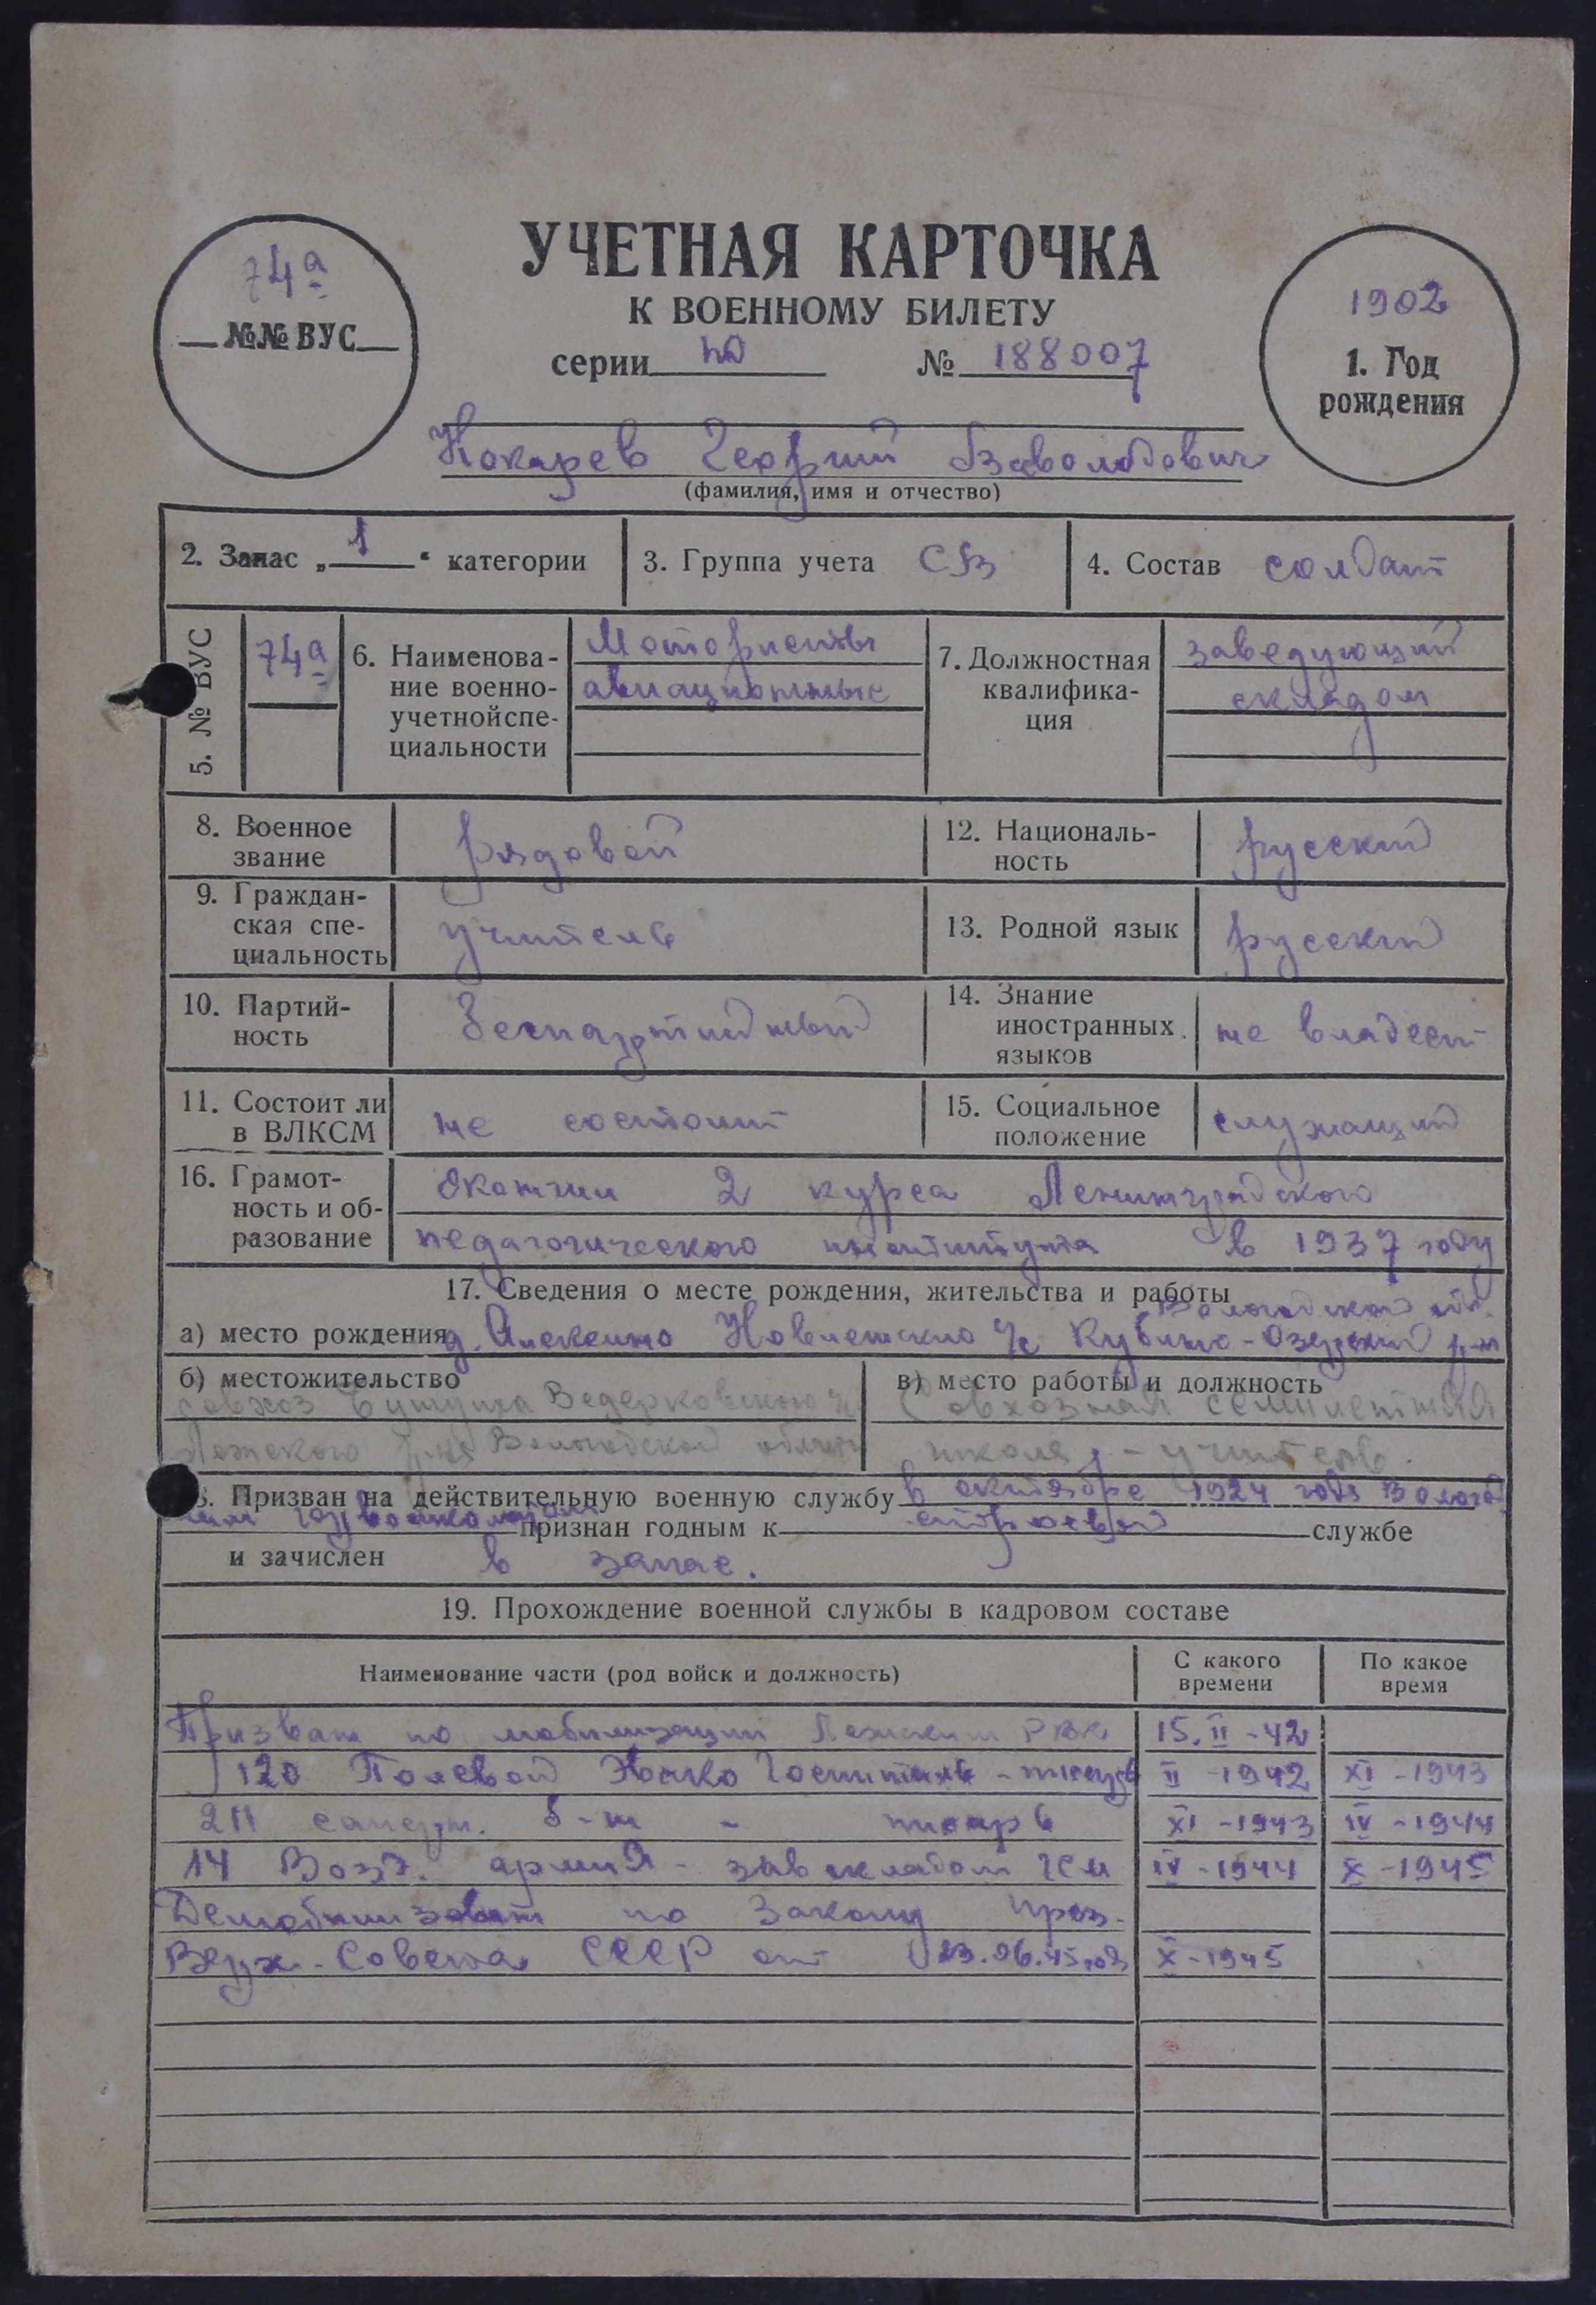 УЧЕТНАЯ КАРТОЧКА
К ВОЕННОМУ БИЛЕТУ
74а
№№ ВУС
серии № 188007
1902
1. Год
рождения
Кокарев Георгий Всеволодович
(фамилия, имя и отчество)
2. Запас „1“ категории
3. Группа учета СВ
4. Состав солдат
5. № ВУС
74а
6. Наименова-
ние военно-
учетнойспе-
циальности
Мотористы
авиационные
7. Должностная
квалифика-
ция
заведующий
складом
8. Военное
звание
рядовой
12. Националь-
ность
русский
9. Граждан-
ская спе-
циальность
учитель
13. Родной язык
русский
10. Партий-
ность
беспартийный
14. Знание
иностранных
языков
не владеет
11. Состоит ли
в ВЛКСМ
не состоит
15. Социальное
положение
служащий
16. Грамот-
ность и об-
разование
окончил 2 курса Ленинградского
педагогического института в 1937 году
17. Сведения о месте рождения, жительства и работы
Вологодской обл.
а) место рождения д. Алексино Новленского с/с Кубино-Озерский р-н
б) местожительство
совхоз Ведерковского с/с
Лежского р-на Вологодской области
в) место работы и должность
Совхозная семилетняя
школа, - учитель.
18. Призван на действительную военную службу в октябре 1924 года Вологод
ским горвоенкоматом признан годным к строевой службе
и зачислен в запас.
19. Прохождение военной службы в кадровом составе
Наименование части (род войск и должность)
С какого
времени
По какое
время
Призван по мобилизации Лежским РВК 15.II-42
120 Полевой Госпиталь - писарь II-1942 XI-1943
211 б-н - писарь XI-1943 IV-1944
14 Возд. армия - зав складом ГСМ IV-1944 X-1945
Демобилизован по Закону през.
Верх. Совета СССР от 23.06.45 года X-1945